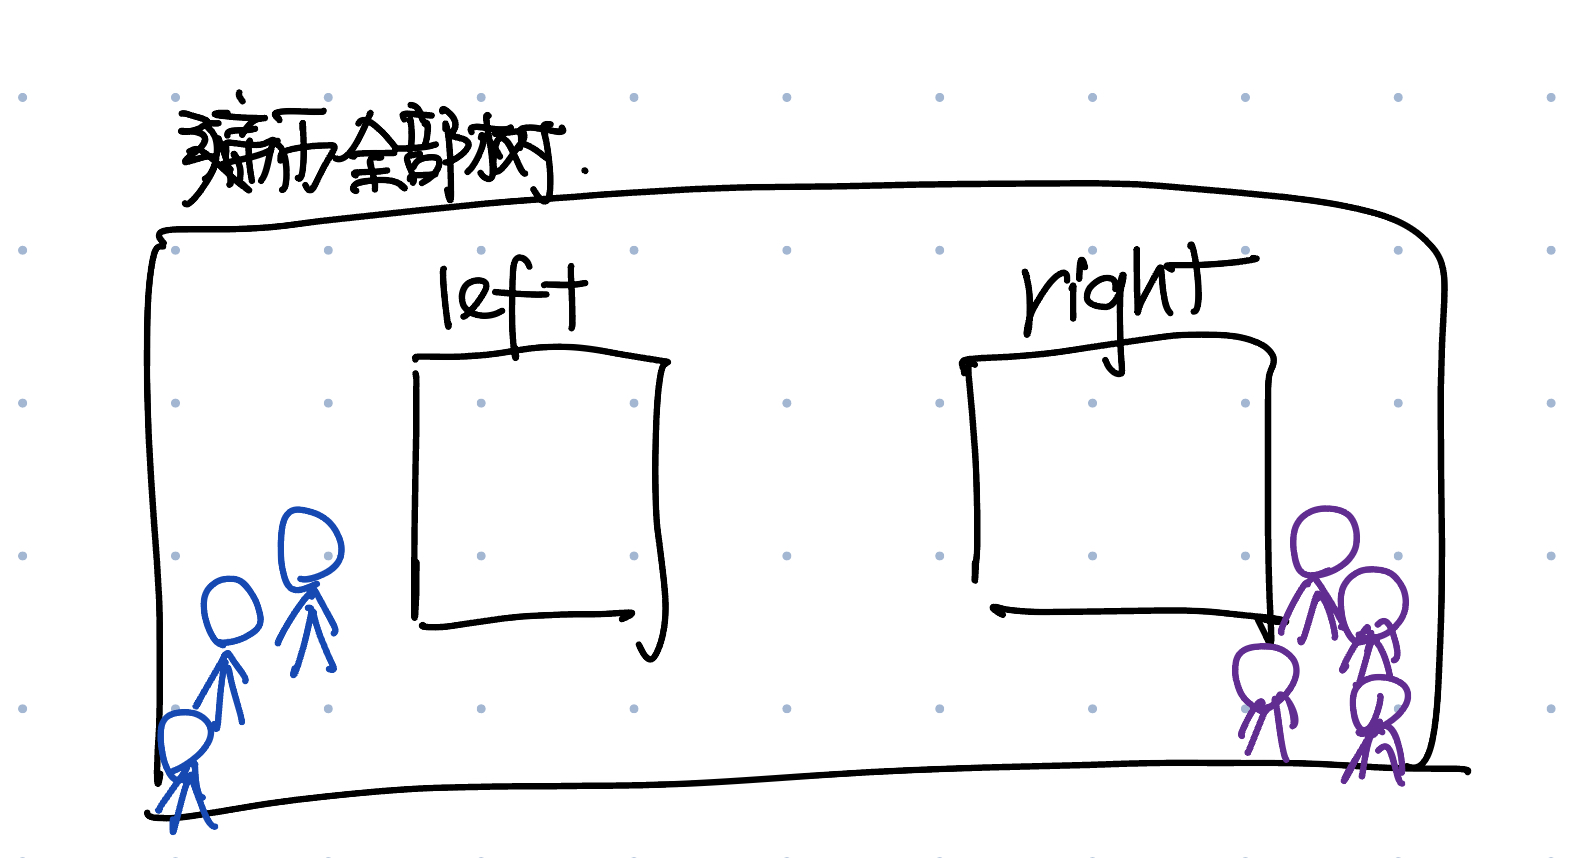 遍历全部树.
left
right